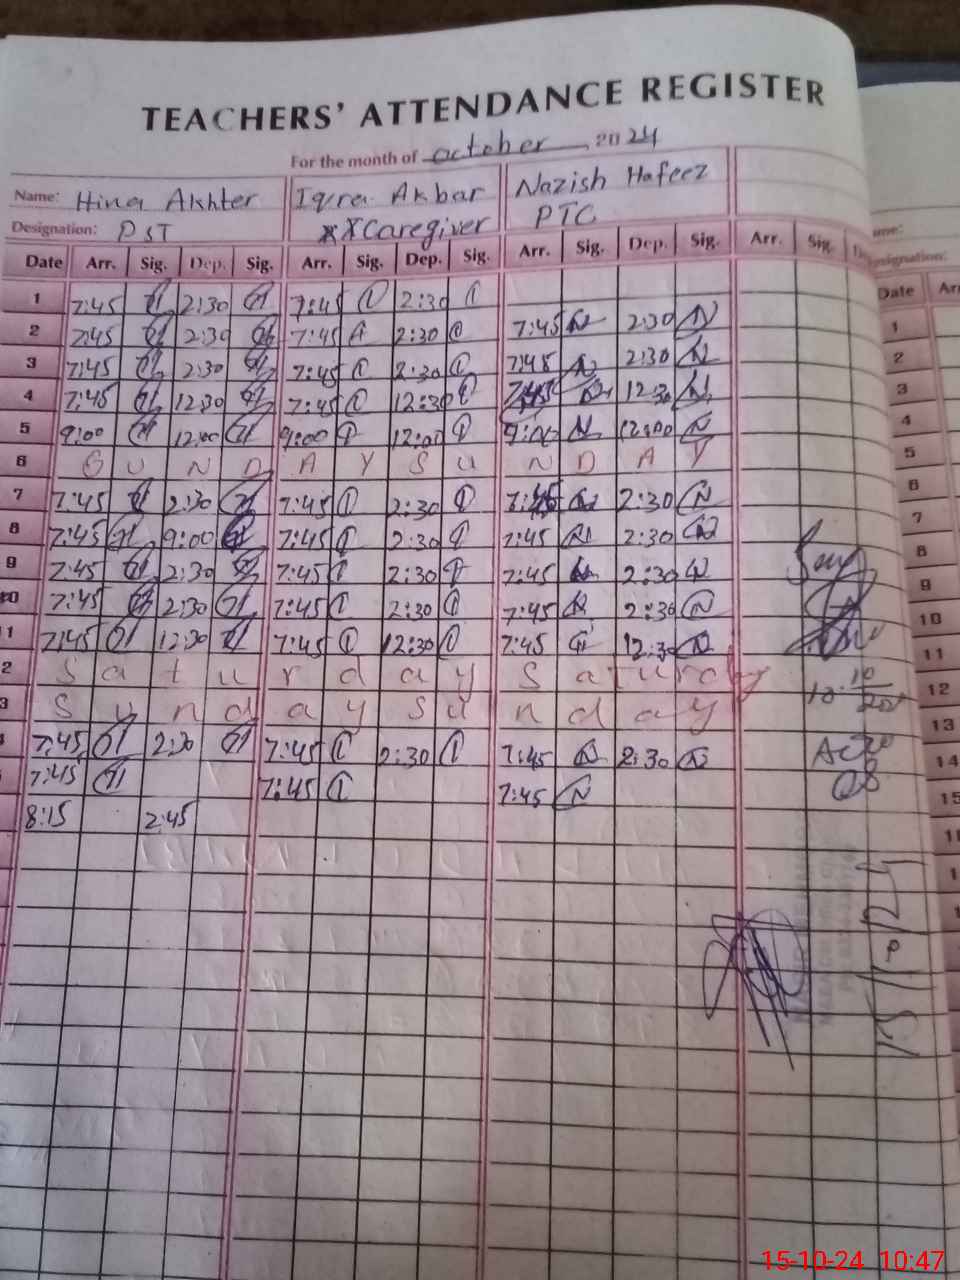 TEACHERS' ATTENDANCE REGISTER
For the month of october 2024
Name: Hina Akhter Iqra Akbar Nazish Hafeez
Designation: PST Caregiver PTC
Date Arr. Sig. Dep. Sig. Arr. Sig. Dep. Sig. Arr. Sig. Dep. Sig. Arr. Sig.
1 7:45 2:30 7:45 2:30
2 7:45 2:30 7:45 A 2:30 7:45 2:30
3 7:45 2:30 7:45 2:30 7:45 2:30
4 7:45 12:30 7:45 12:30 7:45 12:30
5 9:00 12:00 9:00 12:00 9:00 12:00
6 S U N D A Y S U N D A Y
7 7:45 2:30 7:45 2:30 7:45 2:30
8 7:45 9:00 7:45 2:30 7:45 2:30
9 7:45 2:30 7:45 2:30 7:45 2:30
10 7:45 2:30 7:45 2:30 7:45 2:30
11 7:45 12:30 7:45 12:30 7:45 12:30
2 S a t u r d a y S a t u r d a y
3 S u n d a y S u n d a y
4 7:45 2:30 7:45 2:30 7:45 2:30
7:45 7:45 7:45
8:15 2:45
15/10/24
ame:
Designation:
Date Arr
1
2
3
4
5
6
7
8
9
10
11
12
13
14
15
15-10-24 10:47